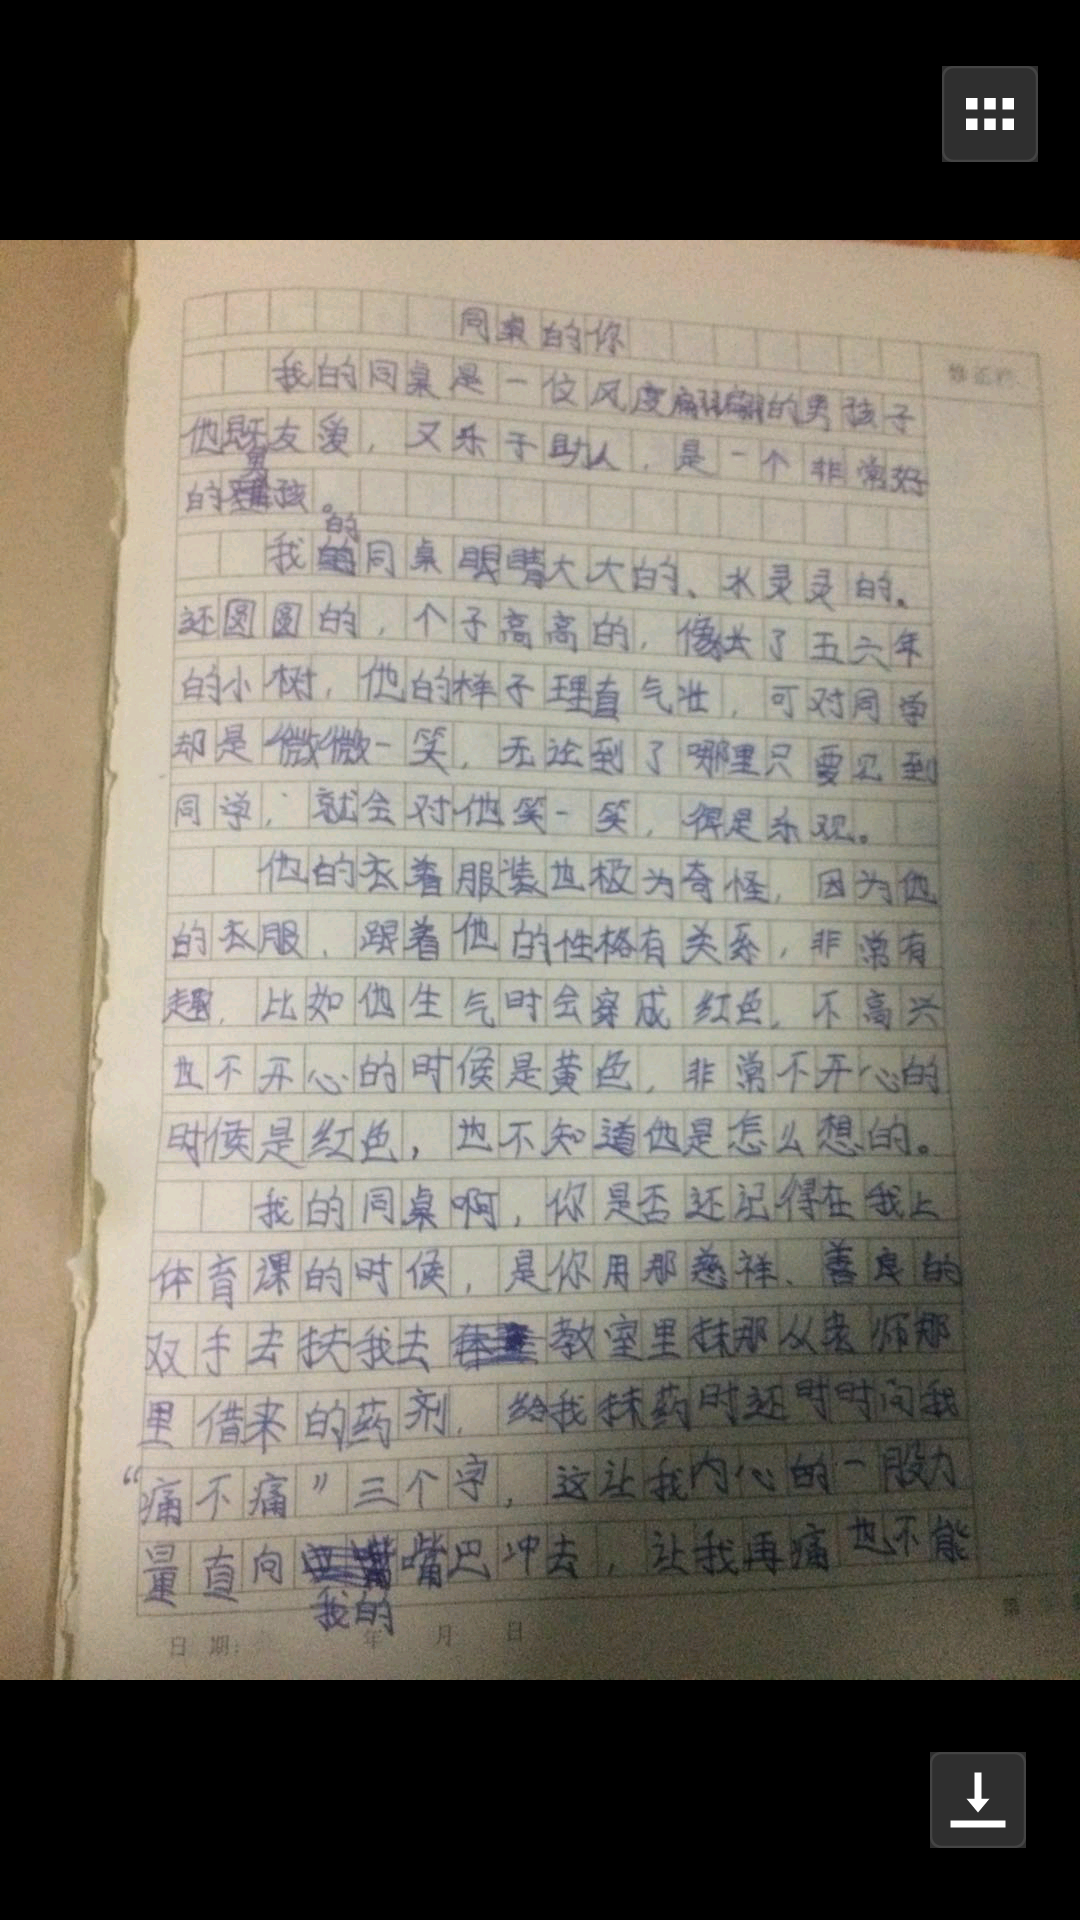 同桌的你
我的同桌是一位风度翩翩的男孩子
他既友爱，又乐于助人，是一个非常好
的男孩。
我的同桌眼睛大大的、水灵灵的。
还圆圆的，个子高高的，像长了五六年
的小树，他的样子理直气壮，可对同学
却是微微一笑，无论到了哪里只要见到
同学，就会对他笑一笑，很是乐观。
他的衣着服装也极为奇怪，因为他
的衣服，跟着他的性格有关系，非常有
趣，比如他生气时会穿成红色，不高兴
也不开心的时候是黄色，非常不开心的
时候是红色，也不知道他是怎么想的。
我的同桌啊，你是否还记得在我上
体育课的时候，是你用那慈祥、善良的
双手去扶我去教室里抹那从老师那
里借来的药剂，给我抹药时还时时问我
“痛不痛”三个字，这让我内心的一股力
量直向我的嘴巴冲去，让我再痛也不能
日 期： 年 月 日
第